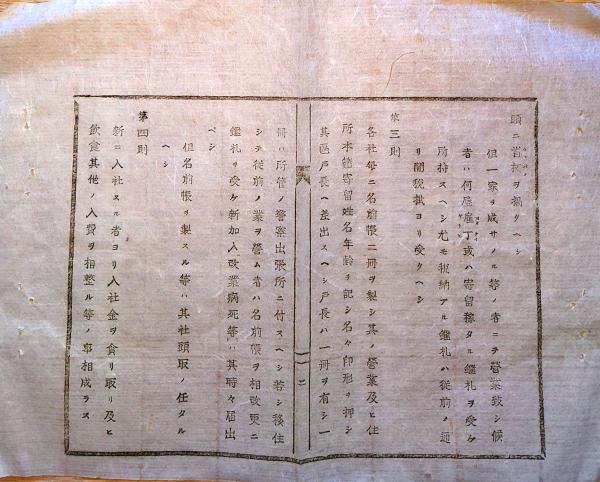 頭ニ首標ヲ掲クヘシ
但一家ヲ成サヽル等ノ者ニテ営業致シ候
者ハ何屋雇丁或ハ寄留稼タル鑑札ヲ受ケ
所持スヘシ尤モ税納アル鑑札ハ従前ノ通
リ関税掛ヨリ受クヘシ
第三則
各社毎ニ名前帳二冊ヲ製シ其ノ営業及ヒ住
所本籍寄留姓名年齢ヲ記シ名々印形ヲ押シ
其区戸長ヘ差出スヘシ戸長ハ一冊ヲ有シ一
冊ハ所管ノ警察出張所ニ付スヘシ若シ移住
シテ従前ノ業ヲ営ム者ハ名前帳ヲ相改更ニ
鑑札ヲ受ケ新加入改業病死等ハ其時々届出
ヘシ
但名前帳ヲ製スル等ハ其社頭取ノ任タル
ヘシ
第四則
新ニ入社スル者ヨリ入社金ヲ貪リ取リ及ヒ
飲食其他ノ入費ヲ相整ル等ノ事相成ラス